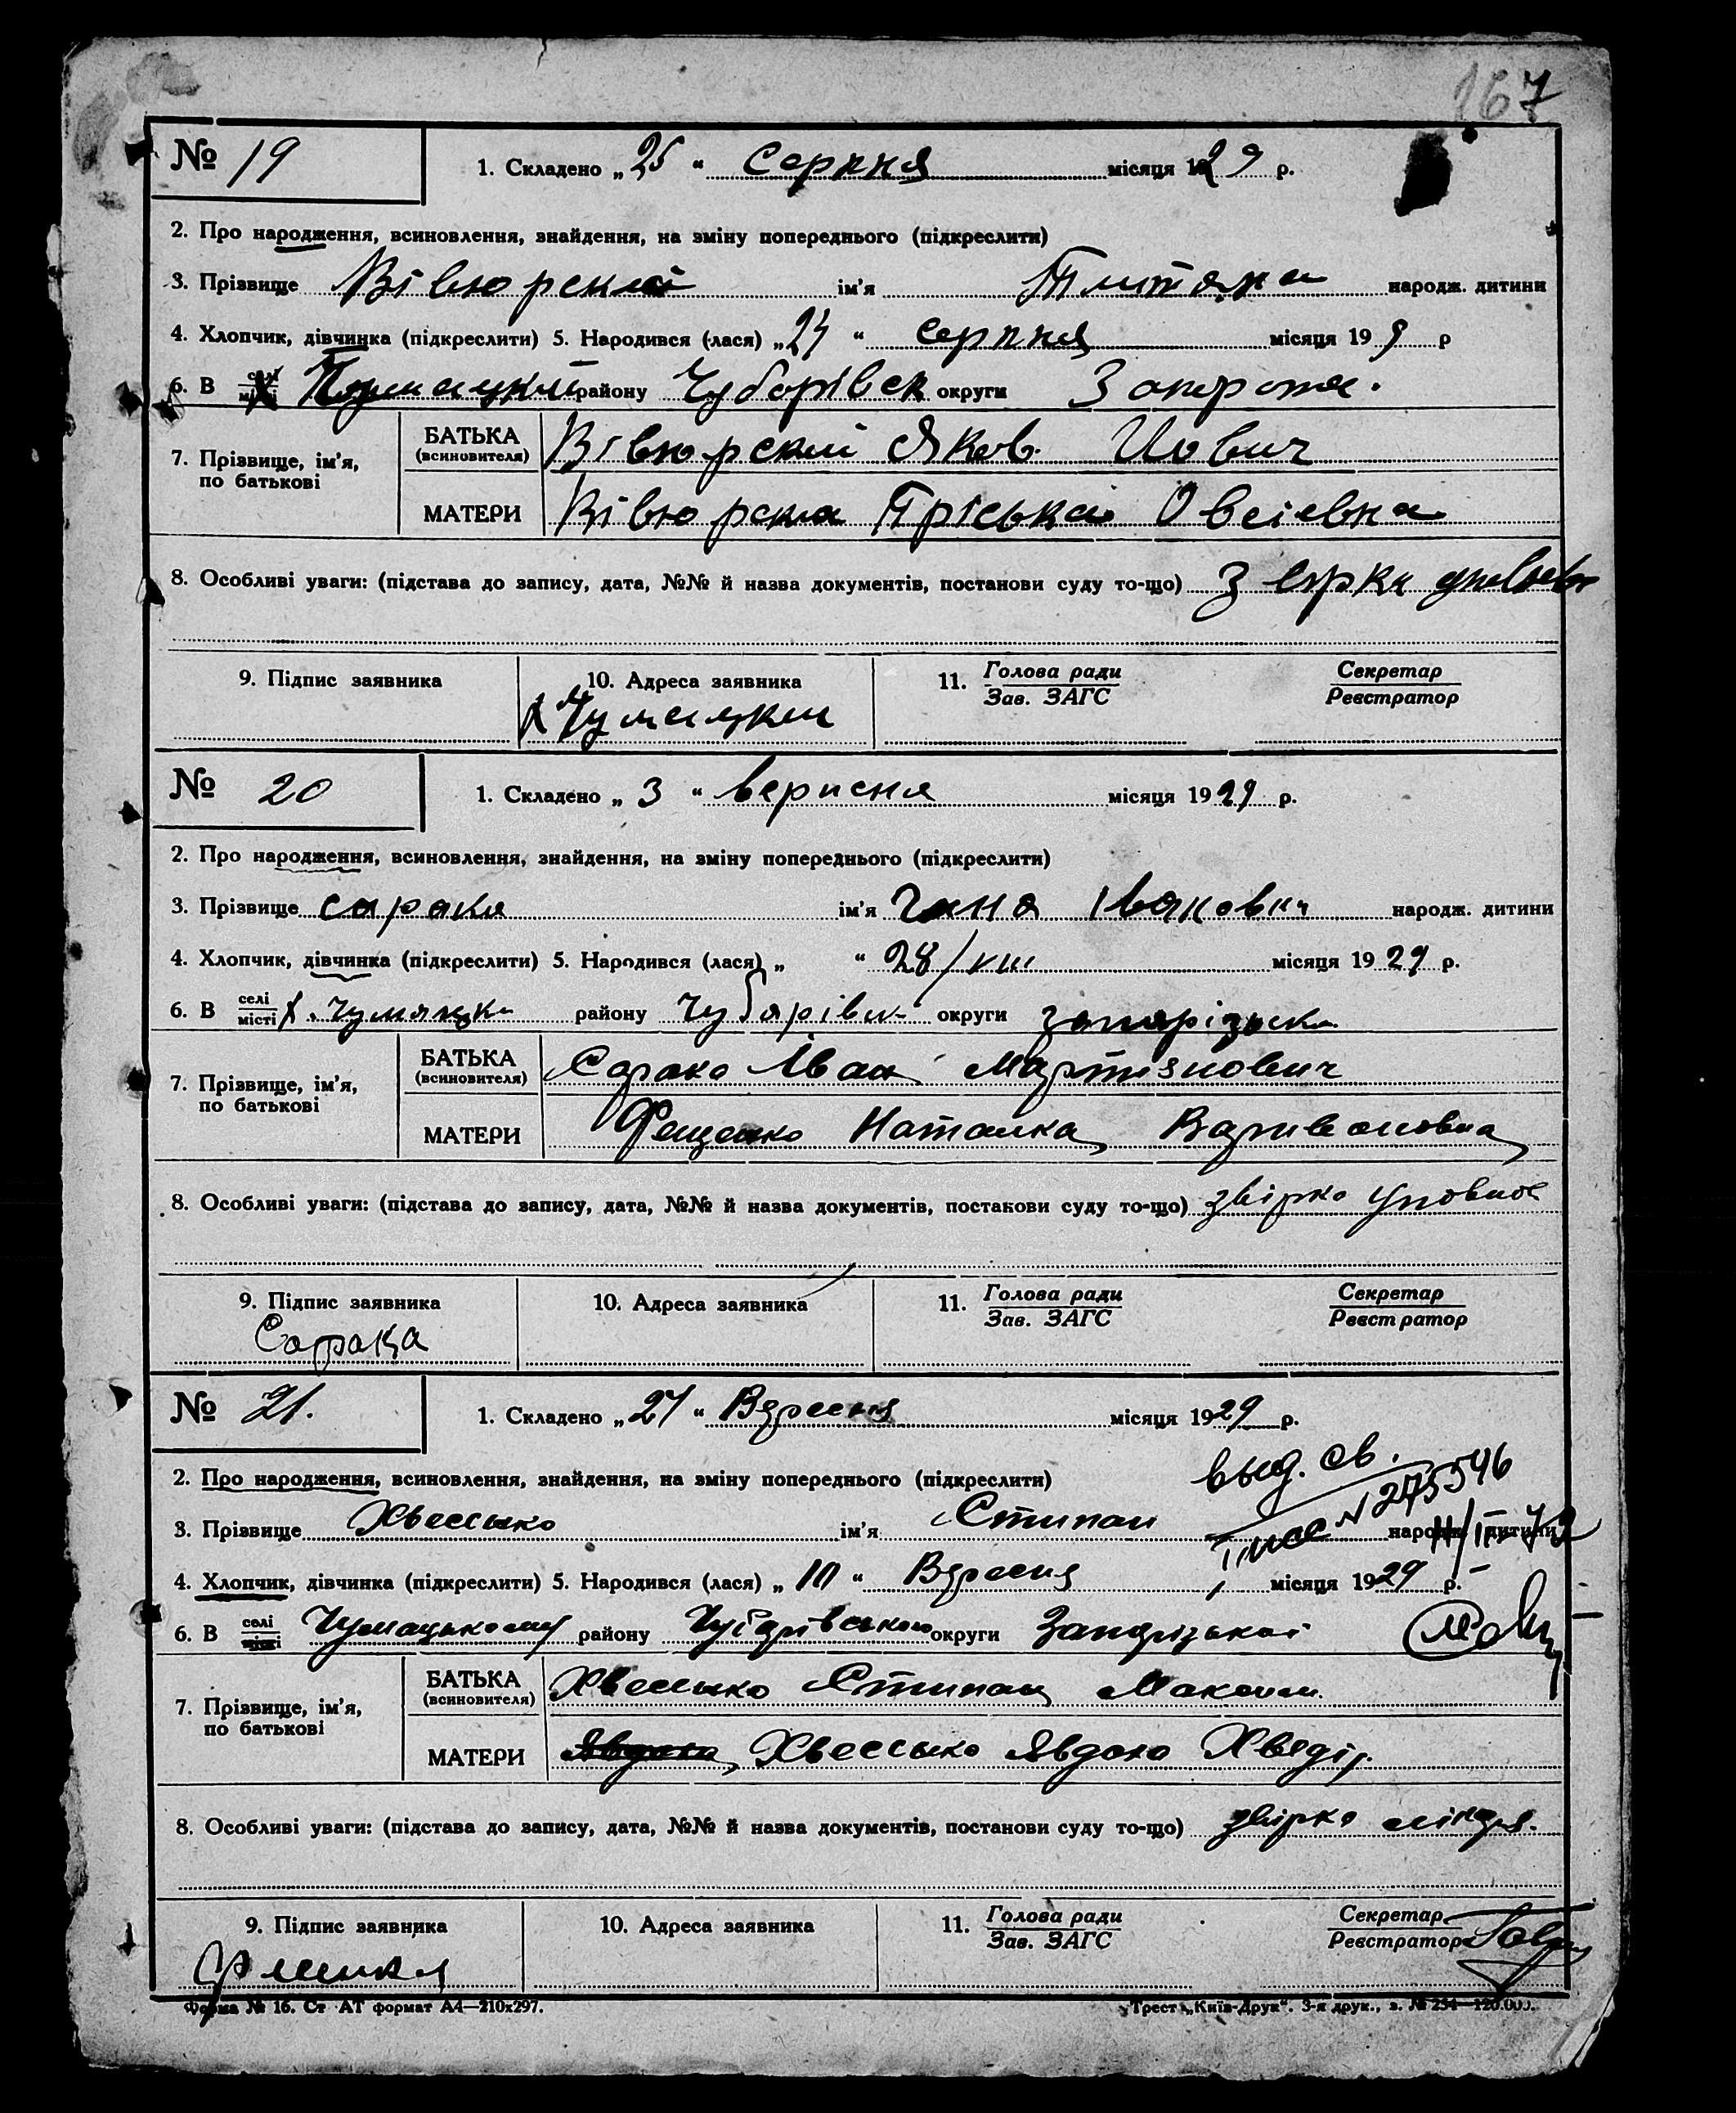 167
№ 19
1. Складено „ 25 “ серпня місяця 1929 р.
2. Про народження, всиновлення, знайдення, на зміну попереднього (підкреслити)
3. Прізвище Вівюрский ім’я народж. дитини
4. Хлопчик, дівчинка (підкреслити) 5. Народився (-лася) „ “ серпня місяця 19 9 р
6. В селі місті району Чубарівск округи Запорож.
7. Прізвище, ім’я, по батькові
БАТЬКА (всиновителя) Вівюрский Яков Иович
МАТЕРИ Вівюрска Пріська Овсіевна
8. Особливі уваги: (підстава до запису, дата, №№ й назва документів, постанови суду то-що)
9. Підпис заявника 10. Адреса заявника 11. Голова ради Зав. ЗАГС Секретар Реєстратор
х Чумацкий
№ 20
1. Складено „ 3 “ версня місяця 1929 р.
2. Про народження, всиновлення, знайдення, на зміну попереднього (підкреслити)
3. Прізвище сорока ім’я Івановн народж. дитини
4. Хлопчик, дівчинка (підкреслити) 5. Народився (лася) „ “ 28/VIII місяця 1929 р.
6. В селі місті х. Чумацьк району Чубарівск округи запорізьк
7. Прізвище, ім’я, по батькові
БАТЬКА (всиновителя) Сорока Іван Мартинович
МАТЕРИ Фещенко Наталка Варивоновна
8. Особливі уваги: (підстава до запису, дата, №№ й назва документів, постанови суду то-що) звірко
9. Підпис заявника 10. Адреса заявника 11. Голова ради Зав. ЗАГС Секретар Реєстратор
Сорока
№ 21.
1. Складено „ 27 “ Вересня місяця 1929 р.
2. Про народження, всиновлення, знайдення, на зміну попереднього (підкреслити)
выд. св.
№ 275546
3. Прізвище Хвессько ім’я Степан народж. дитини
4. Хлопчик, дівчинка (підкреслити) 5. Народився (лася) „ 10 “ Вересня місяця 1929 р.
6. В селі місті Чумацькому району Чубарівського округи Запорізької
7. Прізвище, ім’я, по батькові
БАТЬКА (всиновителя) Хвессько Степан Максим.
МАТЕРИ Хвессько Явдоха Хведір.
8. Особливі уваги: (підстава до запису, дата, №№ й назва документів, постанови суду то-що) звірко
9. Підпис заявника 10. Адреса заявника 11. Голова ради Зав. ЗАГС Секретар Реєстратор
Форма № 16. Ст АТ формат А4—210х297. Трест „Київ-Друк“. 3-я друк., з. № 254—120.000.